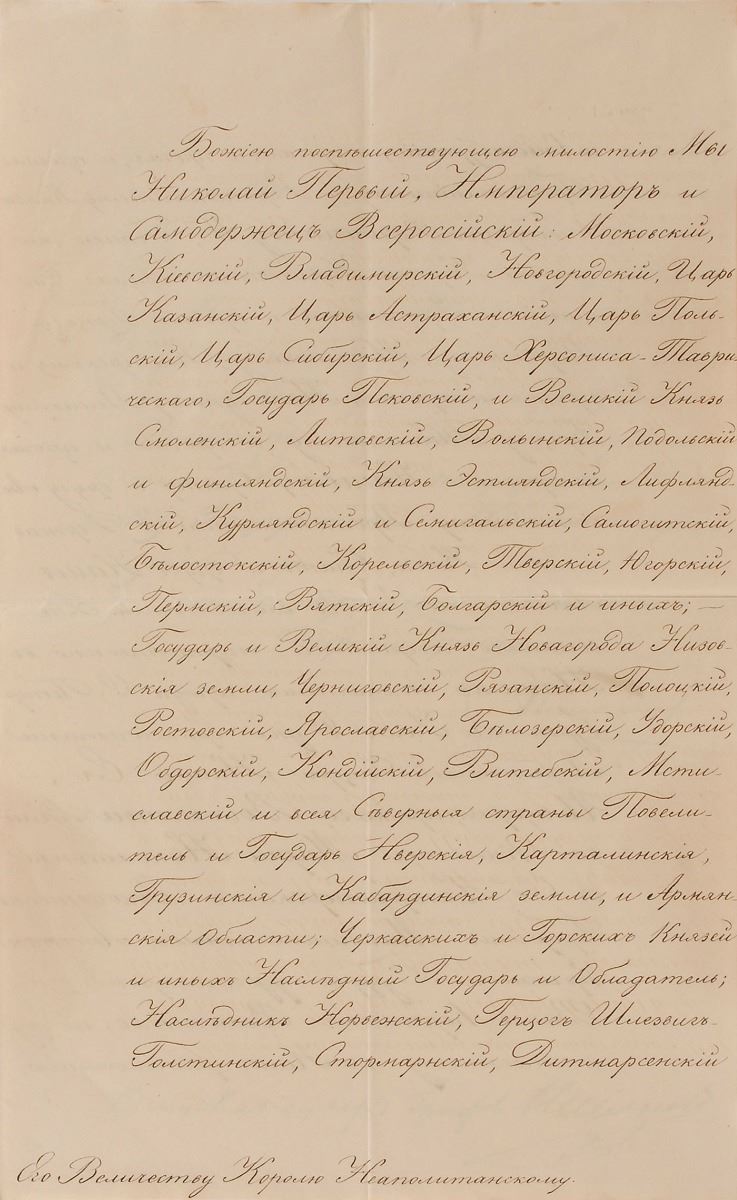 Божіею поспѣшествующею милостію Мы
Николай Первый, Императоръ и
Самодержецъ Всероссійскій: Московскій,
Кіевскій, Владимирскій, Новгородскій, Царь
Казанскій, Царь Астраханскій, Царь Поль-
скій, Царь Сибирскій, Царь Херсониса-Таври-
ческаго, Государь Псковскій, и Великій Князь
Смоленскій, Литовскій, Волынскій, Подольскій
и Финляндскій, Князь Эстляндскій, Лифлянд-
скій, Курляндскій и Семигальскій, Самогитскій,
Бѣлостокскій, Корельскій, Тверскій, Югорскій,
Пермскій, Вятскій, Болгарскій и иныхъ; —
Государь и Великій Князь Новагорода Низов-
скія земли, Черниговскій, Рязанскій, Полоцкій,
Ростовскій, Ярославскій, Бѣлозерскій, Удорскій,
Обдорскій, Кондійскій, Витебскій, Мсти-
славскій и всея Сѣверныя страны Повели-
тель и Государь Иверскія, Карталинскія,
Грузинскія и Кабардинскія земли, и Армян-
скія Области; Черкасскихъ и Горскихъ Князей
и иныхъ Наслѣдный Государь и Обладатель;
Наслѣдникъ Норвежскій, Герцогъ Шлезвигъ-
Голстинскій, Стормарнскій, Дитмарсенскій
Его Величеству Королю Неаполитанскому.